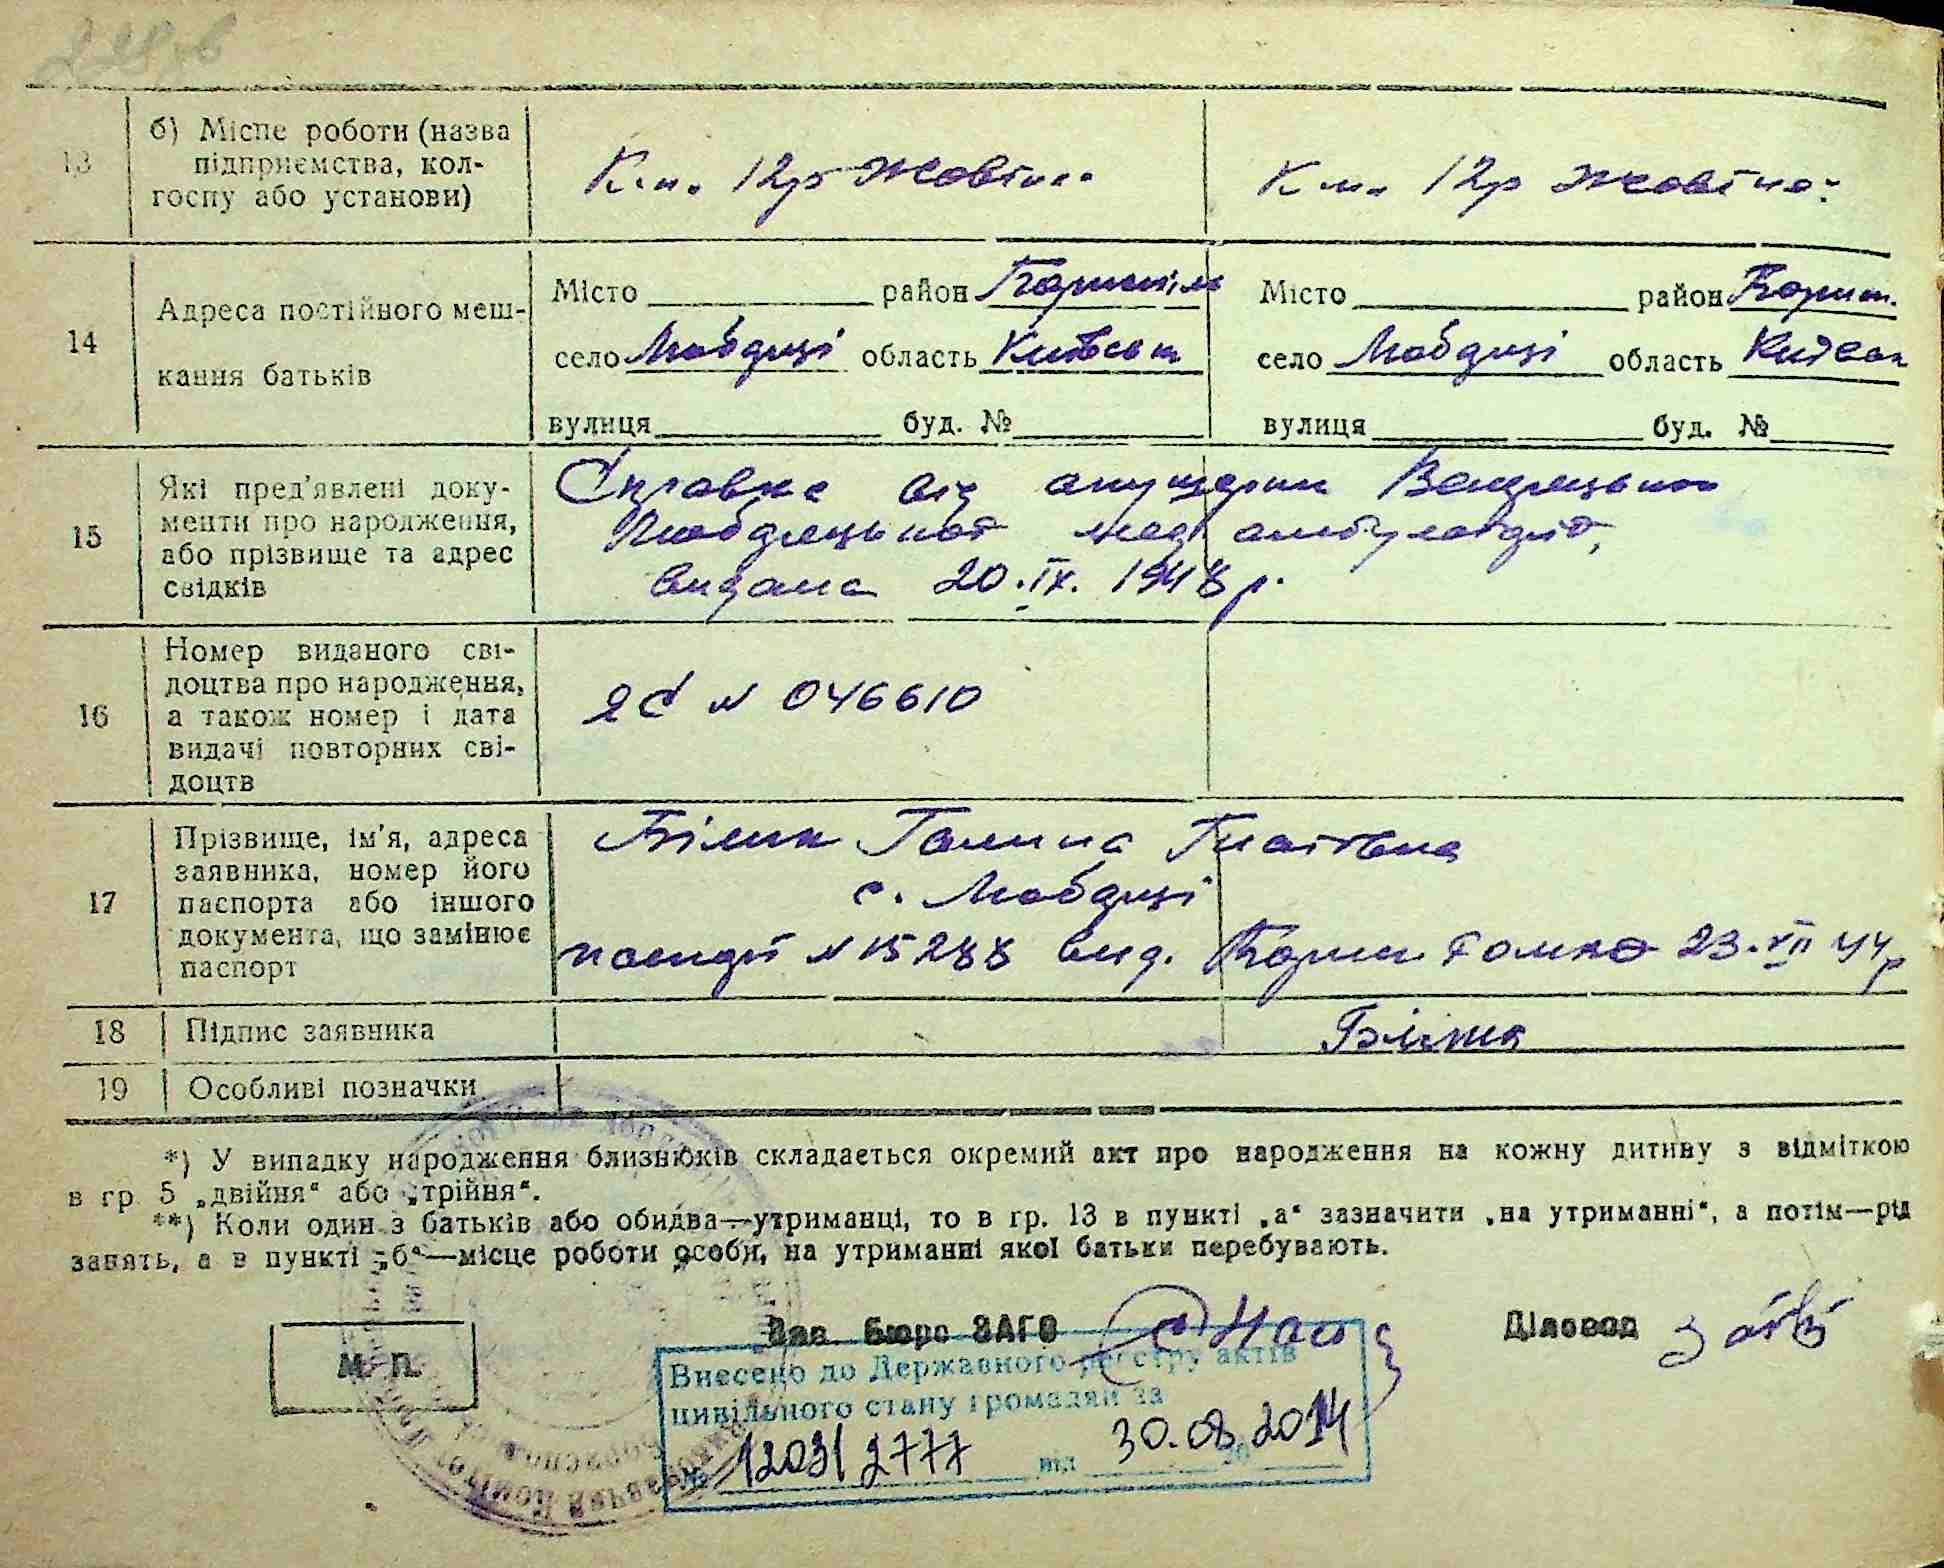 13
б) Місце роботи (назва
підприємства, кол-
госпу або установи)
К-п. 12 р Жовтня
К-п. 12 р Жовтня
14
Адреса постійного меш-
кання батьків
Місто район Бориспіль
село Любарці область Київськ
вулиця буд. №
Місто район Борисп.
село Любарці область Київськ
вулиця буд. №
15
Які пред'явлені доку-
менти про народження,
або прізвище та адрес
свідків
Справка від акушерки
Любарецької мед амбулаторії,
видана 20.IX.1948 р.
16
Номер виданого сві-
доцтва про народження,
а також номер і дата
видачі повторних сві-
доцтв
N 046610
17
Прізвище, ім'я, адреса
заявника, номер його
паспорта або іншого
документа, що замінює
паспорт
Білик Галина Гнатівна
с. Любарці
N 15288 вид. Борисп 23.VII 44 р
18
Підпис заявника
19
Особливі позначки
*) У випадку народження близнюків складається окремий акт про народження на кожну дитину з відміткою
в гр 5 „двійня“ або „трійня“.
**) Коли один з батьків або обидва—утриманці, то в гр. 13 в пункті „а“ зазначити „на утриманні“, а потім—рід
занять, а в пункті „б“—місце роботи особи, на утриманні якої батьки перебувають.
М. П.
Зав Бюро ЗАГС
Діловод
Внесено до Державного реєстру актів
цивільного стану громадян за
№ 12031 2777 від 30.08.2014